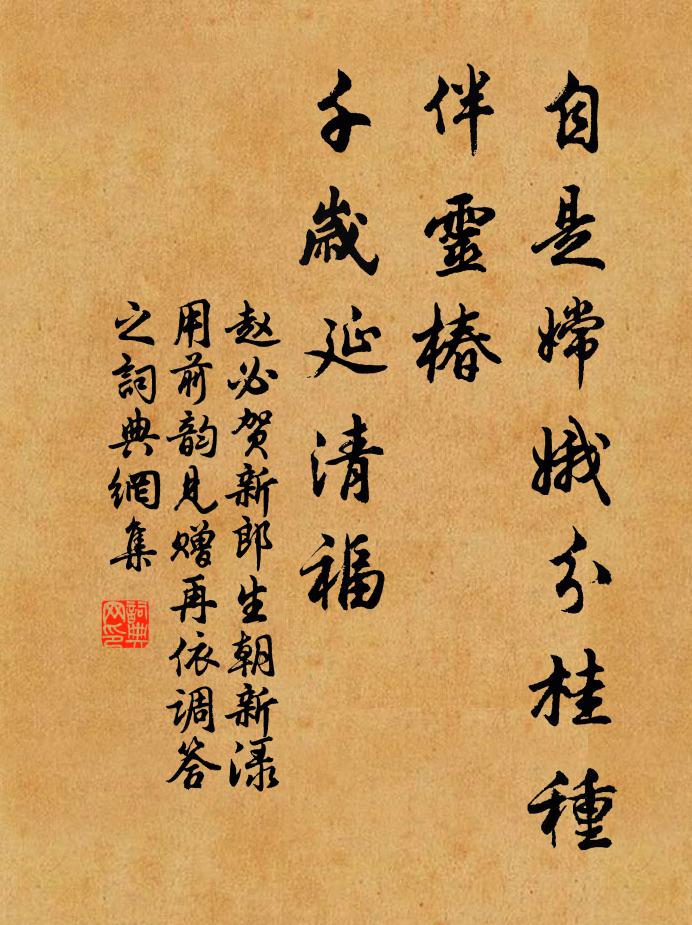 自是嫦娥分桂種
伴靈椿
千歲延清福
赵必贺新郎生朝新渌
用前韵見赠再依調答
之詞典網集
詞典
网印